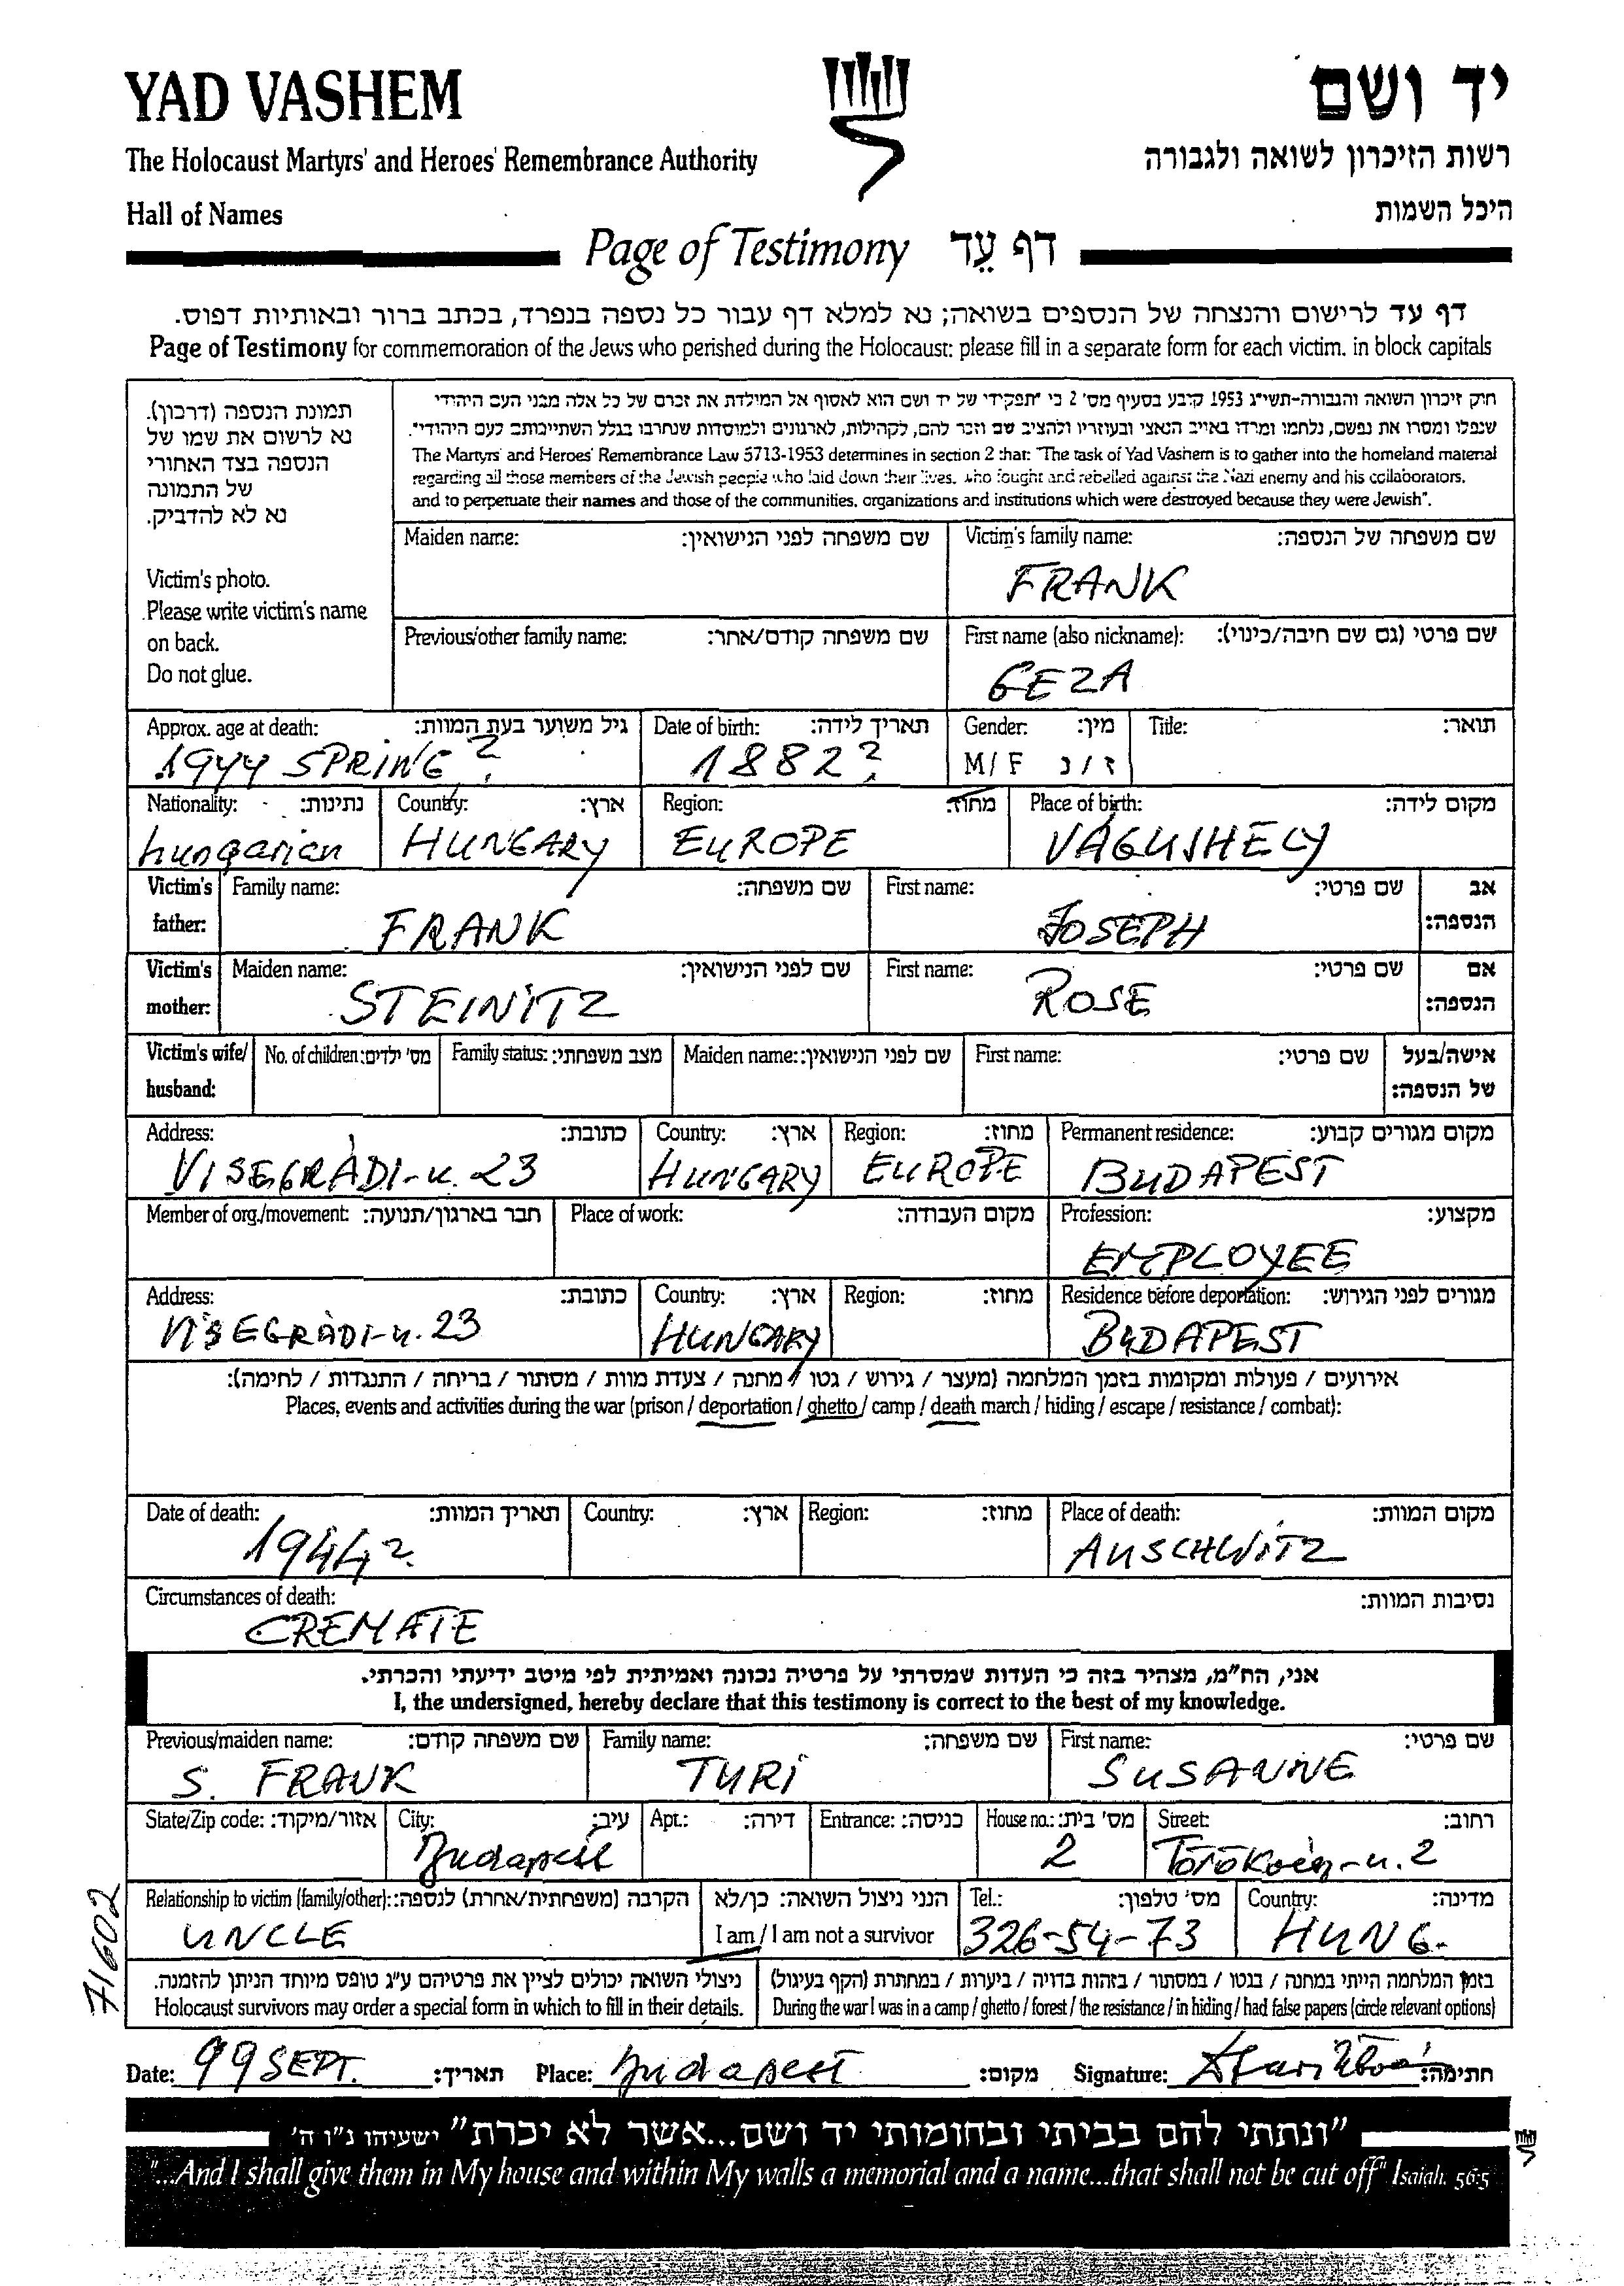 YAD VASHEM
יד ושם
The Holocaust Martyrs' and Heroes' Remembrance Authority
רשות הזיכרון לשואה ולגבורה
Hall of Names
היכל השמות
Page of Testimony דף עֵד
דף עד לרישום והנצחה של הנספים בשואה; נא למלא דף עבור כל נספה בנפרד, בכתב ברור ובאותיות דפוס.
Page of Testimony for commemoration of the Jews who perished during the Holocaust: please fill in a separate form for each victim. in block capitals
תמונת הנספה (דרכון).
נא לרשום את שמו של
הנספה בצד האחורי
של התמונה
נא לא להדביק.
Victim's photo.
Please write victim's name
on back.
Do not glue.
חוק זיכרון השואה והגבורה-תשי"ג 1953 קובע בסעיף מס' 2 כי "תפקידי של יד ושם הוא לאסוף אל המולדת את זכרם של כל אלה מבני העם היהודי
שנפלו ומסרו את נפשם, נלחמו ומרדו באויב הנאצי ובעוזריו ולהציב שם וזכר להם, לקהילות, לארגונים ולמוסדות שנחרבו בגלל השתייכותם לעם היהודי".
The Martyrs' and Heroes' Remembrance Law 5713-1953 determines in section 2 that: "The task of Yad Vashem is to gather into the homeland material
regarding all those members of the Jewish people who laid down their lives, who fought and rebelled against the Nazi enemy and his collaborators,
and to perpetuate their names and those of the communities, organizations and institutions which were destroyed because they were Jewish".
Maiden name: שם משפחה לפני הנישואין:
Victim's family name: שם משפחה של הנספה:
FRANK
Previous/other family name: שם משפחה קודם/אחר:
First name (also nickname): שם פרטי (גם שם חיבה/כינוי):
GEZA
Approx. age at death: גיל משוער בעת המוות:
1944 SPRING?
Date of birth: תאריך לידה:
1882?
Gender: מין:
M/F ז/נ
Title: תואר:
Nationality: נתינות:
hungarian
Country: ארץ:
HUNGARY
Region: מחוז:
EUROPE
Place of birth: מקום לידה:
VÁGUJHELY
Victim's father:
Family name: שם משפחה:
FRANK
First name: שם פרטי:
JOSEPH
אב הנספה:
Victim's mother:
Maiden name: שם לפני הנישואין:
STEINITZ
First name: שם פרטי:
ROSE
אם הנספה:
Victim's wife/ husband:
No. of children: מס' ילדים:
Family status: מצב משפחתי:
Maiden name: שם לפני הנישואין:
First name: שם פרטי:
אישה/בעל של הנספה:
Address: כתובת:
VISEGRÀDI-u. 23
Country: ארץ:
HUNGARY
Region: מחוז:
EUROPE
Permanent residence: מקום מגורים קבוע:
BUDAPEST
Member of org./movement: חבר בארגון/תנועה:
Place of work: מקום העבודה:
Profession: מקצוע:
EMPLOYEE
Address: כתובת:
VISEGRÀDI-u. 23
Country: ארץ:
HUNGARY
Region: מחוז:
Residence before deportation: מגורים לפני הגירוש:
BUDAPEST
אירועים / פעולות ומקומות בזמן המלחמה (מעצר / גירוש / גטו / מחנה / צעדת מוות / מסתור / בריחה / התנגדות / לחימה):
Places, events and activities during the war (prison / deportation / ghetto / camp / death march / hiding / escape / resistance / combat):
Date of death: תאריך המוות:
1944?
Country: ארץ:
Region: מחוז:
Place of death: מקום המוות:
AUSCHWITZ
Circumstances of death: נסיבות המוות:
CREMATE
אני, הח"מ, מצהיר בזה כי העדות שמסרתי על פרטיה נכונה ואמיתית לפי מיטב ידיעתי והכרתי.
I, the undersigned, hereby declare that this testimony is correct to the best of my knowledge.
Previous/maiden name: שם משפחה קודם:
S. FRANK
Family name: שם משפחה:
TURI
First name: שם פרטי:
SUSANNE
State/Zip code: אזור/מיקוד:
City: עיר:
Budapest
Apt.: דירה:
Entrance: כניסה:
House no.: מס' בית:
2
Street: רחוב:
Törökvész-u. 2
Relationship to victim (family/other): הקרבה (משפחתית/אחרת) לנספה:
UNCLE
הנני ניצול השואה: כן/לא
I am / I am not a survivor
Tel.: מס' טלפון:
326-54-73
Country: מדינה:
HUNG.
71602
ניצולי השואה יכולים לציין את פרטיהם ע"ג טופס מיוחד הניתן להזמנה.
Holocaust survivors may order a special form in which to fill in their details.
בזמן המלחמה הייתי במחנה / בגטו / במסתור / בזהות בדויה / ביערות / במחתרת (הקף בעיגול)
During the war I was in a camp / ghetto / forest / the resistance / in hiding / had false papers (circle relevant options)
Date: 99 SEPT. תאריך: Place: Budapest מקום: Signature: חתימה:
"ונתתי להם בביתי ובחומותי יד ושם...אשר לא יכרת" ישעיהו נ"ו ה'
"...And I shall give them in My house and within My walls a memorial and a name...that shall not be cut off" Isaiah. 56:5